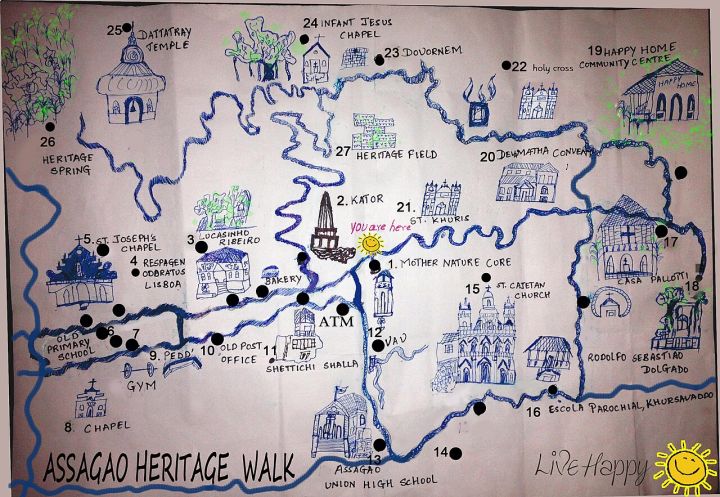 25 DATTATRAY
TEMPLE
24 INFANT JESUS
CHAPEL
23 DOVORNEM
22 holy cross
19 HAPPY HOME
COMMUNITY CENTRE
HAPPY HOME
26
HERITAGE
SPRING
27 HERITAGE FIELD
20 DEVMATHA CONVENT
2. KATOR
21.
ST. KHURIS
you are here
5. ST. JOSEPH'S
CHAPEL
3
LUCASINHO
RIBEIRO
4
RESPAGEN
ODBRATUS
LISBOA
BAKERY
1. MOTHER NATURE CORE
17
CASA PALLOTTI
18
15
ST. CAETAN
CHURCH
ATM
OLD
PRIMARY
SCHOOL
6
7
9. PEDD'
10 OLD POST
OFFICE
11
SHETTICHI SHALLA
12
VAU
RODOLFO SEBASTIAO
DOLGADO
GYM
8. CHAPEL
16 ESCOLA PAROCHIAL, KHURSAVADDO
13
ASSAGAO
UNION HIGH SCHOOL
14
ASSAGAO HERITAGE WALK
LiVE Happy